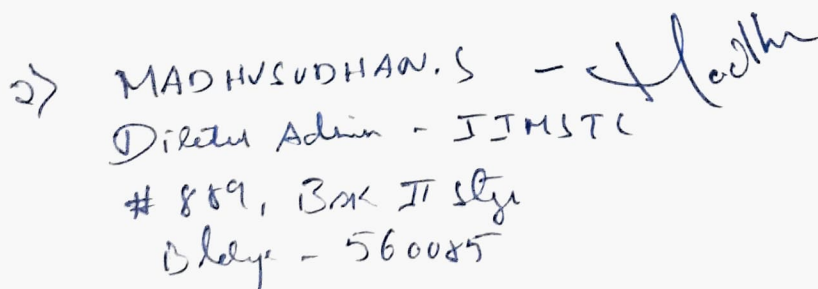 2) MADHUSUDHAN.S - Madhu
Director Admin - IIMSTC
# 889, BSK II Stge
Blore - 560085